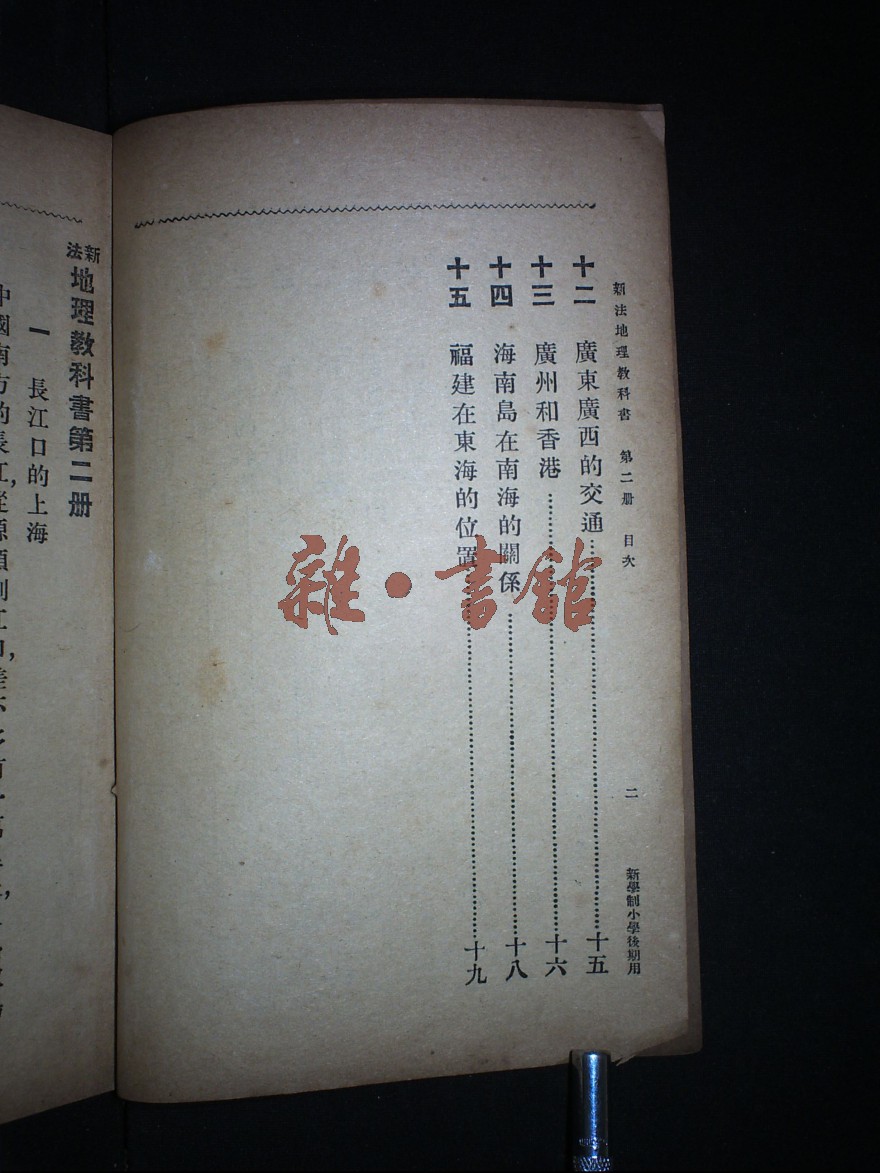 新法地理教科書 第二册 目次 二 新學制小學後期用
十二 廣東廣西的交通……十五
十三 廣州和香港……十六
十四 海南島在南海的關係……十八
十五 福建在東海的位置……十九
雜·書館
新法地理教科書第二册
一 長江口的上海
中國南方的長江,從源頭到江口,差不多有一萬